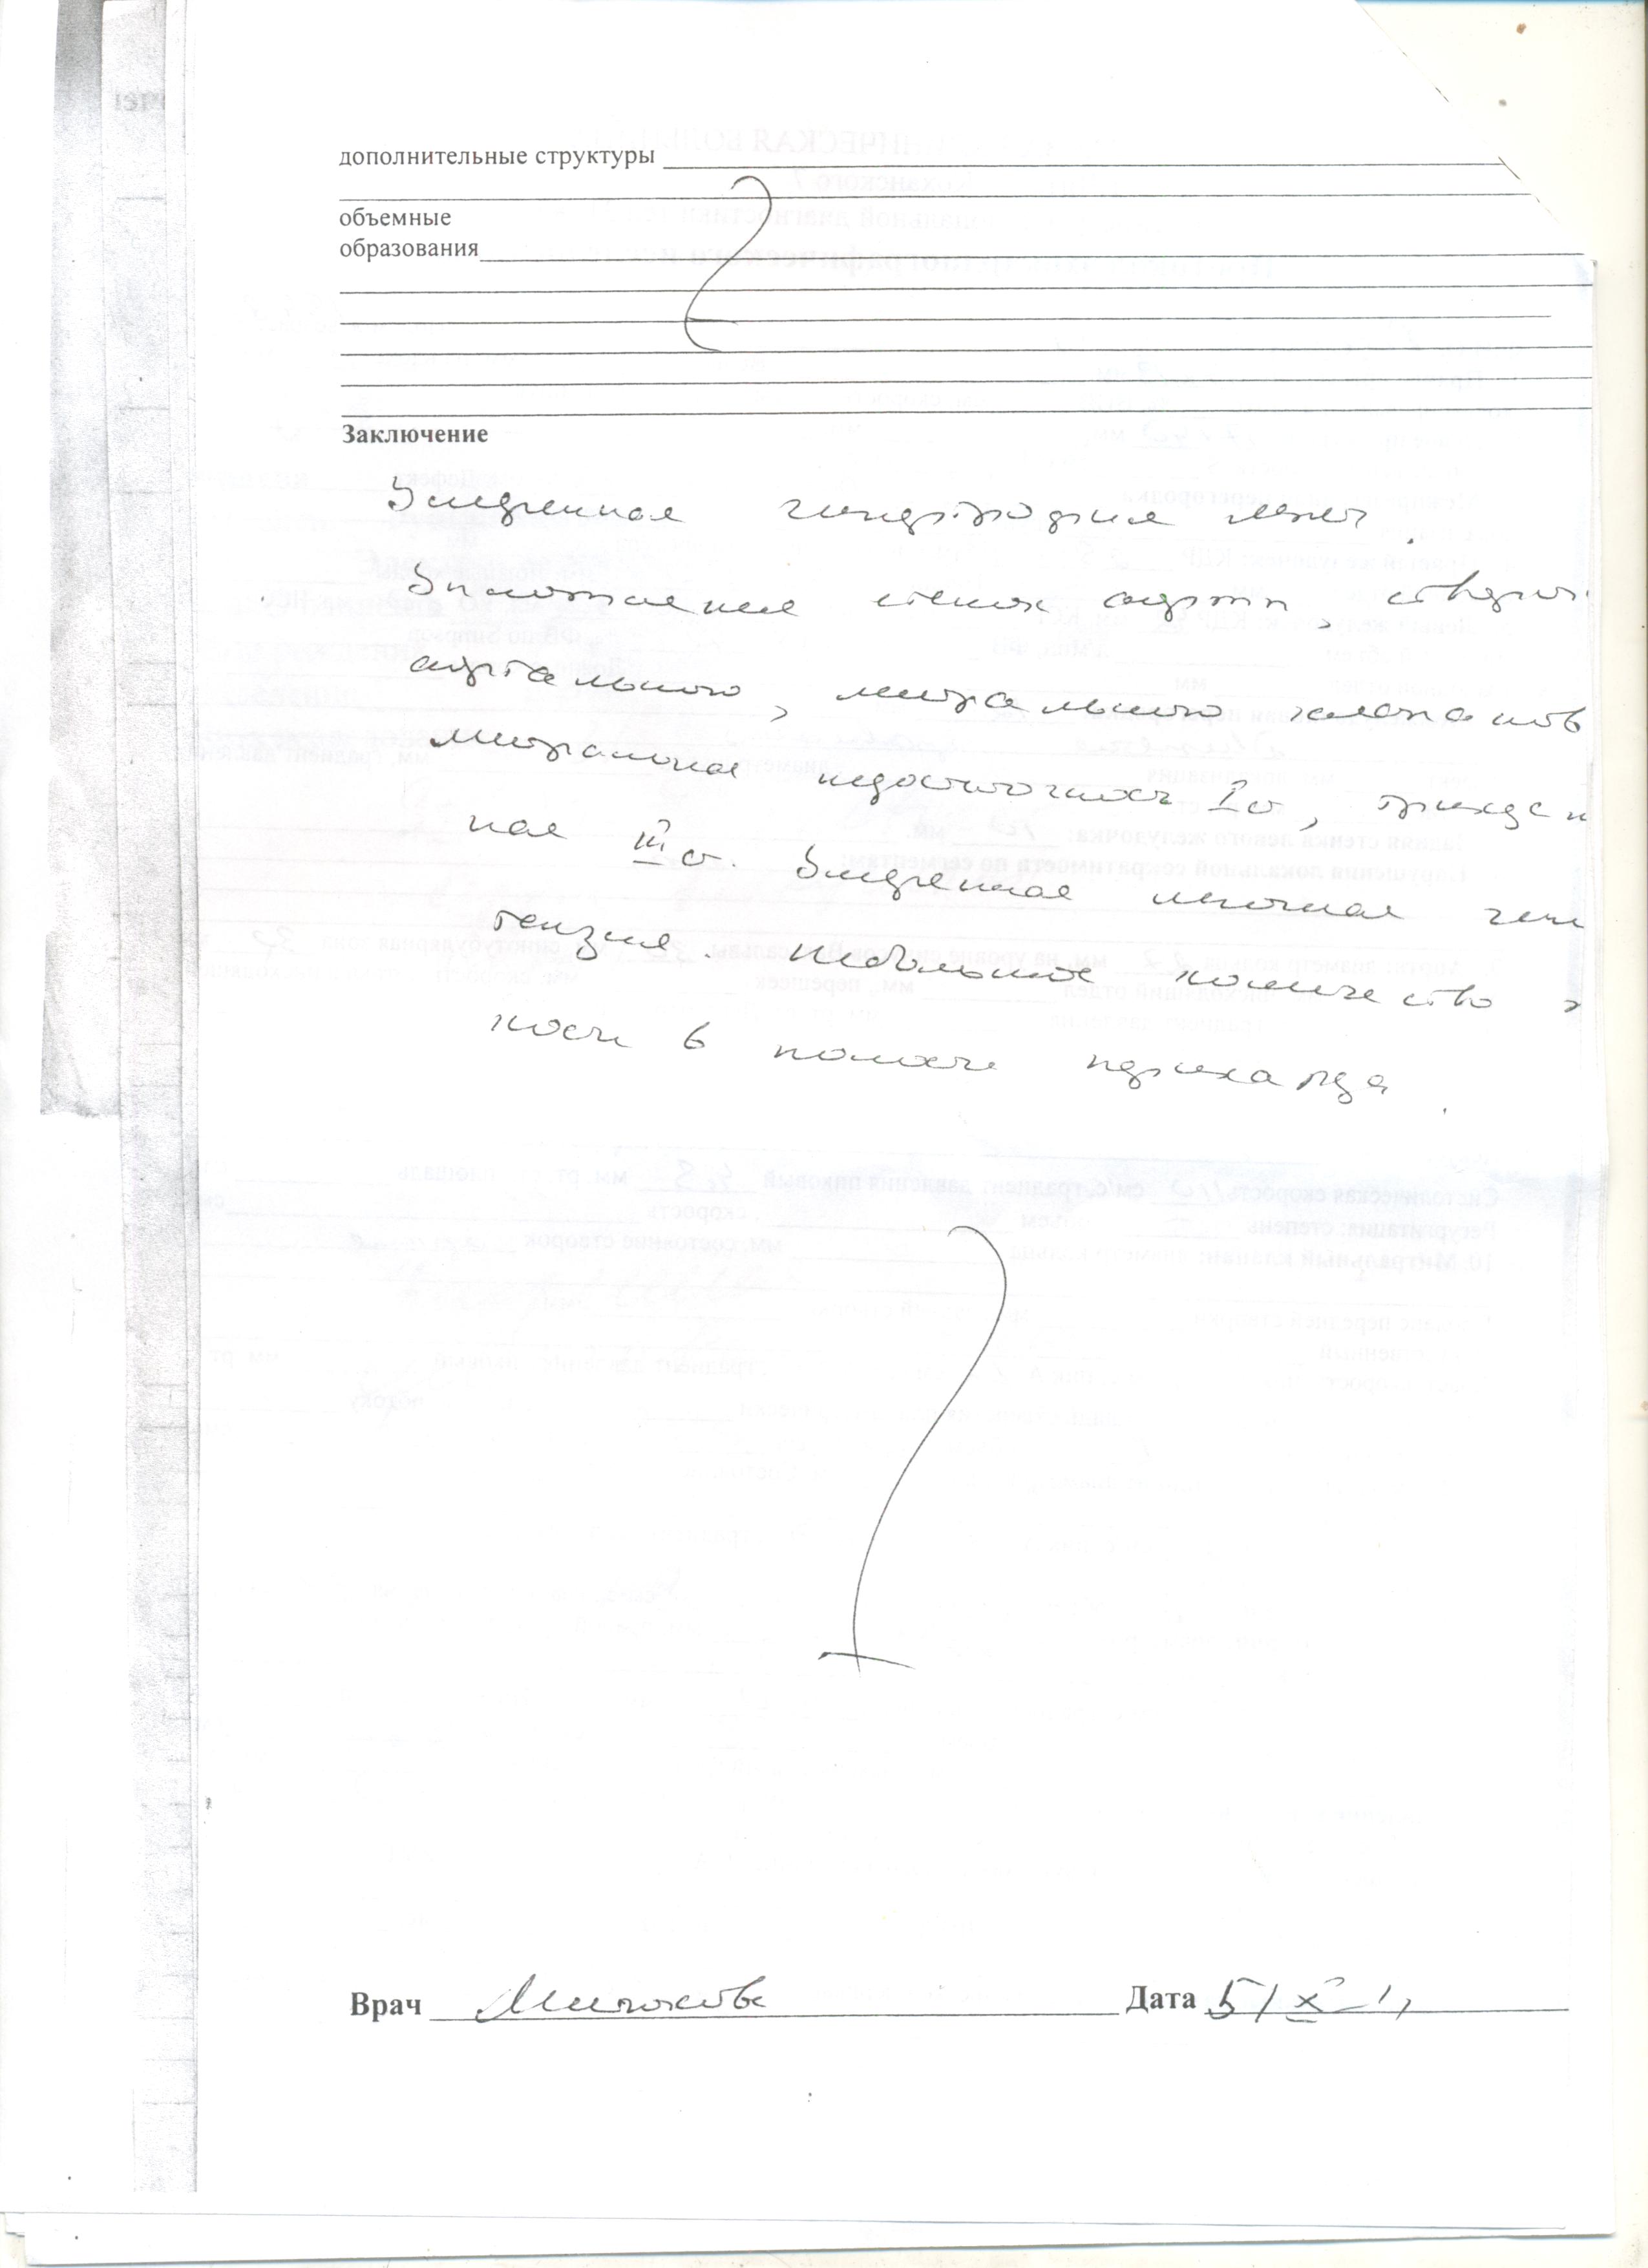 дополнительные структуры
объемные
образования
Заключение
Умеренная гипертрофия
Уплотнение стенок аорты, створок
аортального, митрального клапанов
митральная недостаточность I ст, трикуспи
ная III ст. Умеренная легочная гипер
тензия. Небольшое количество
кости в полости перикарда.
Врач
Дата 5/X-11